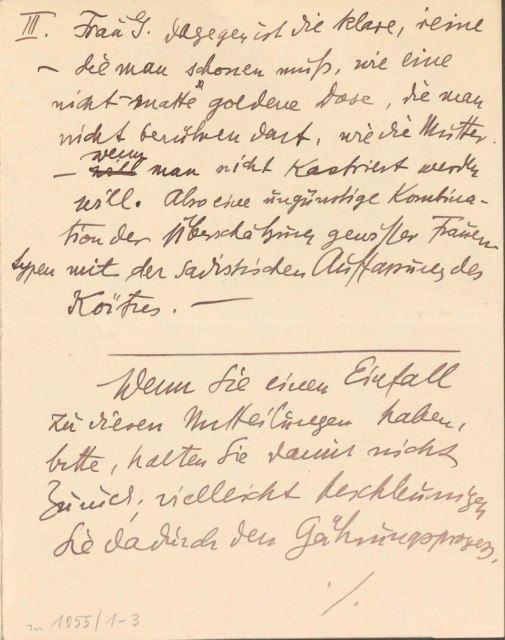 III. Frau G. dagegen ist die klare, reine
– die man schonen muß, wie eine
nicht "matte" goldene Dose, die man
nicht berühren darf, wie die Mutter
– wenn man nicht kastriert werden
will. Also eine ungünstige Kombina-
tion der Überschätzung gewisser Frauen-
typen mit der sadistischen Auffassung des
Koitus. —
Wenn Sie einen Einfall
zu diesen Mitteilungen haben,
bitte, halten Sie damit nicht
zurück, vielleicht beschleunigen
Sie dadurch den Gährungsprozess.
./.
1055/1-3